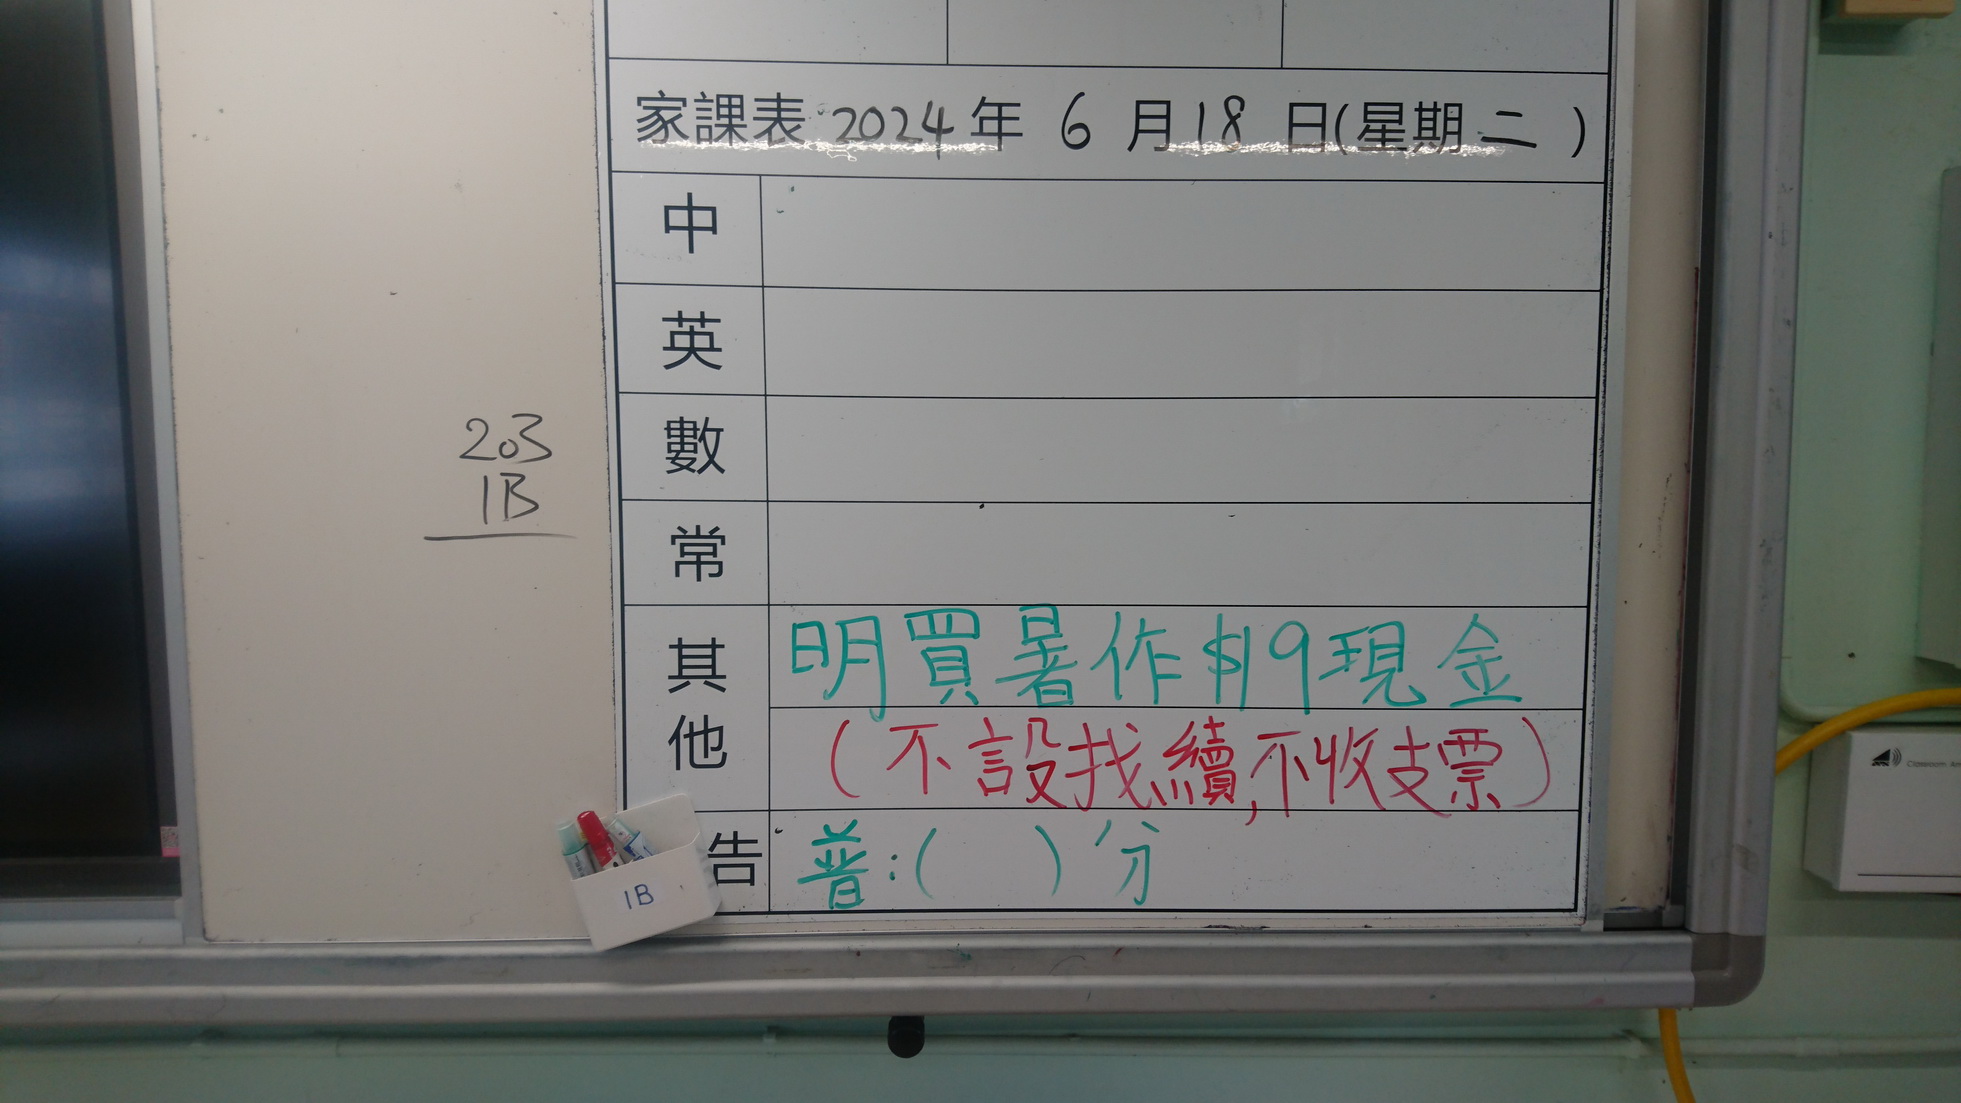 家課表 2024年 6月18日(星期二)
中
英
數
常
其他
明買暑作$19現金
(不設找續,不收支票)
告
普:( )分
203
1B
1B
Classroom Am